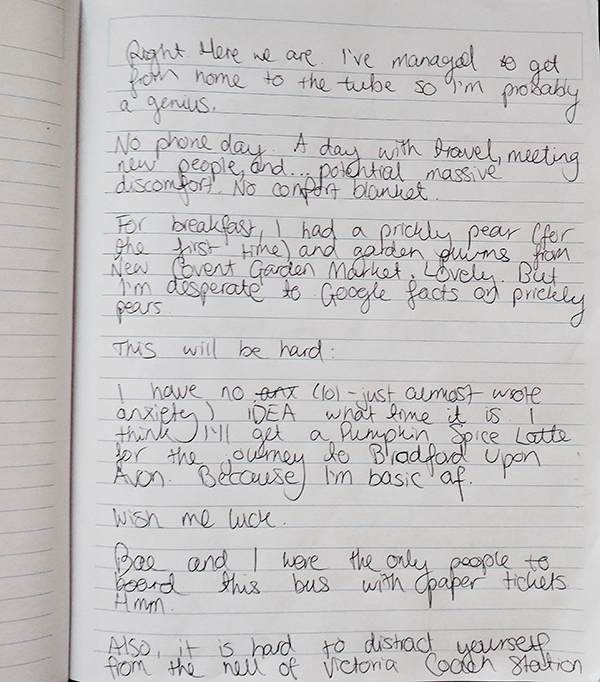 Right. Here we are. I've managed to get
from home to the tube so I'm probably
a genius.
No phone day. A day with travel, meeting
new people, and... potential massive
discomfort. No comfort blanket.
For breakfast, I had a prickly pear (for
the first time) and garden plums from
New Covent Garden Market. Lovely. But
I'm desperate to Google facts on prickly
pears.
This will be hard:
I have no anx (lol - just almost wrote
anxiety) IDEA what time it is. I
think I'll get a Pumpkin Spice Latte
for the journey to Bradford Upon
Avon. Because I'm basic af.
Wish me luck.
Bae and I were the only people to
board this bus with paper tickets.
Hmm.
Also, it is hard to distract yourself
from the hell of Victoria Coach Station